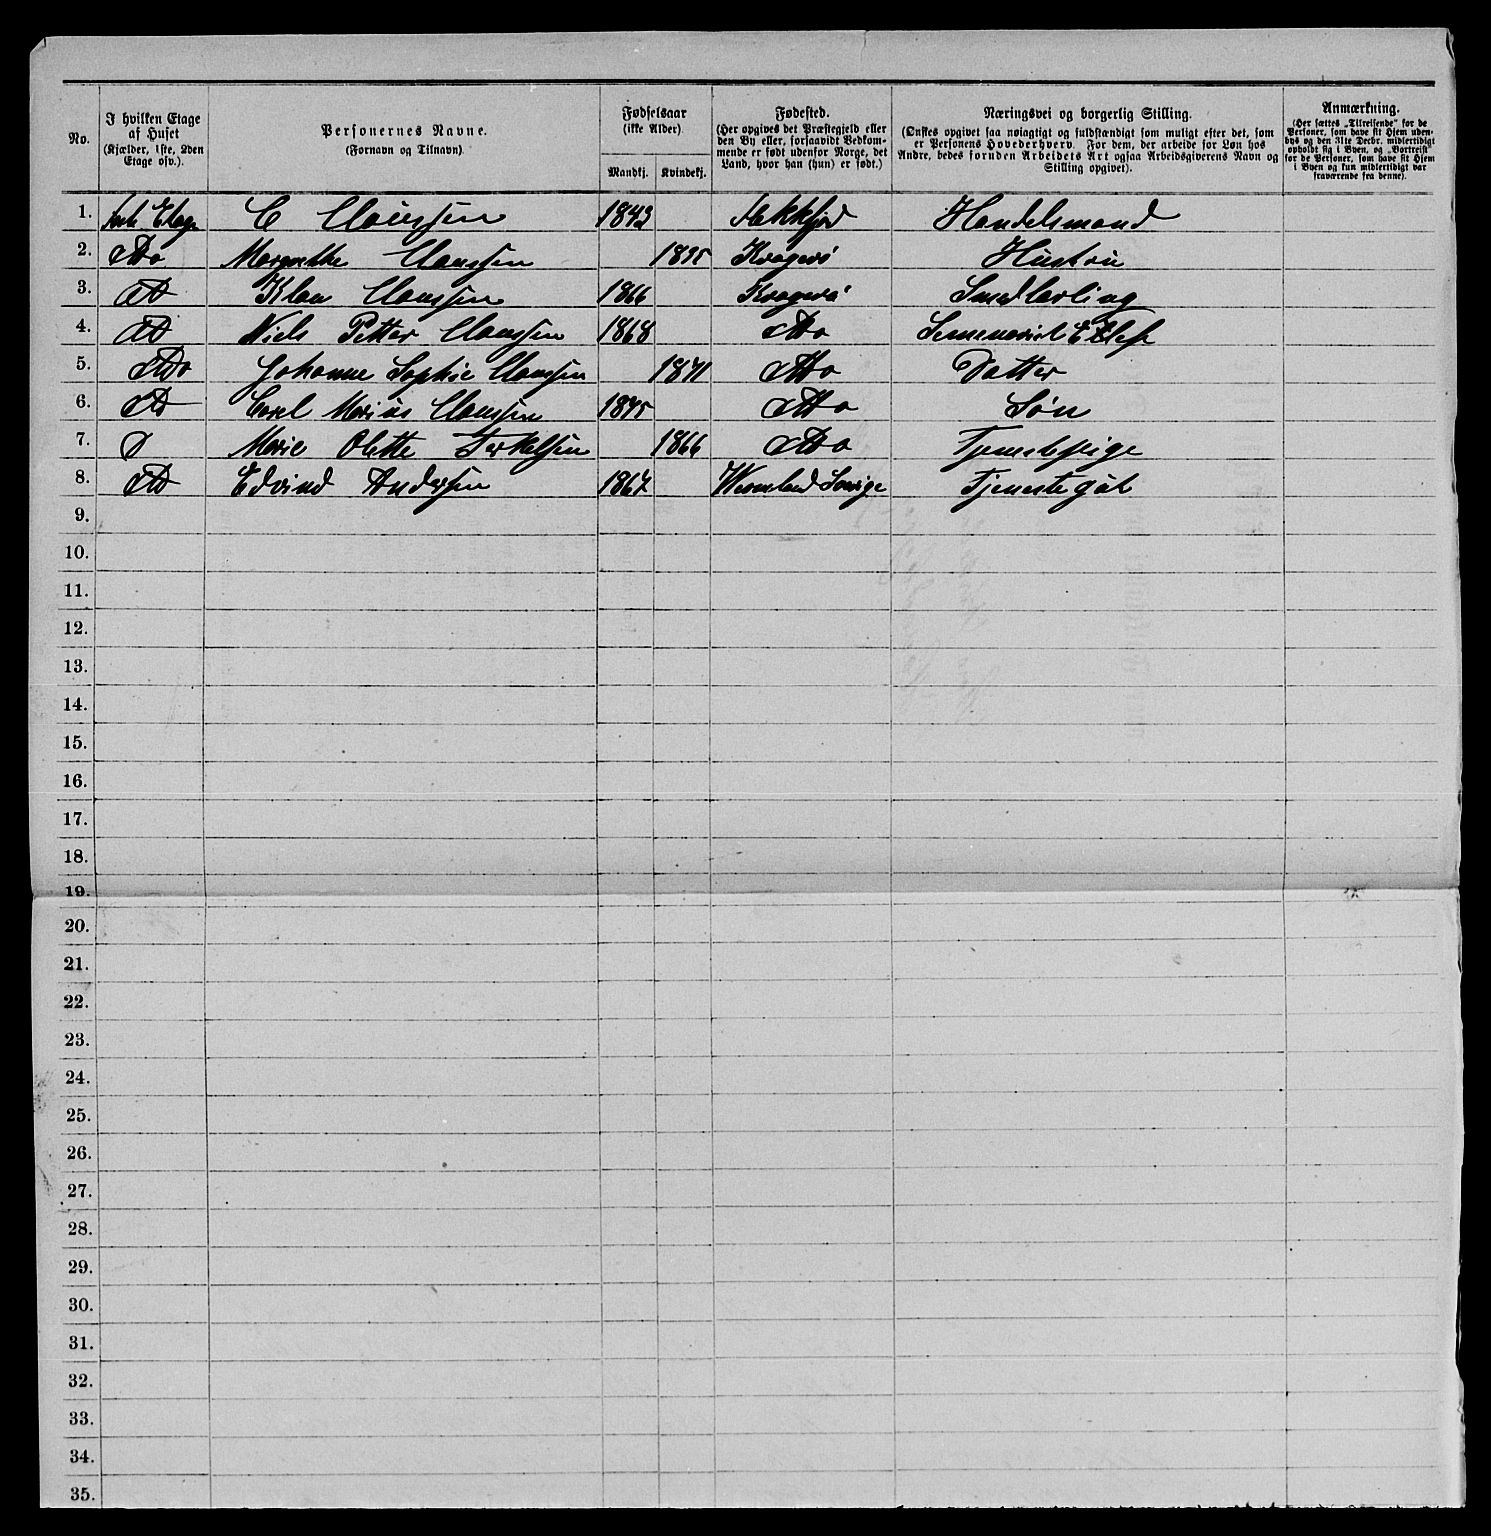 No.
I hvilken Etage af Huset
(Kjælder, 1ste, 2den Etage osv.).
Personernes Navne.
(Fornavn og Tilnavn)
Fødselsaar
(ikke Alder)
Mandkj. Kvindekj.
Fødested.
(Her opgives det Præstegjeld eller
den By eller, forsaavidt Vedkom-
mende er født udenfor Norge, det
Land, hvor han (hun) er født.)
Næringsvei og borgerlig Stilling.
(Ønskes opgivet saa nøiagtigt og fuldstændigt som muligt efter det, som
er Personens Hovederhverv. For dem, der arbeide for Løn hos
Andre, bedes foruden Arbeidets Art ogsaa Arbeidsgiverens Navn og
Stilling opgivet).
Anmærkning.
(Her sættes „Tilreisende" for de
Personer, som have sit Hjem uden-
bys og den 31te Decbr. midlertidigt
opholdt sig i Byen, og „Bortreist"
for de Personer, som have sit Hjem
i Byen og kun midlertidigt var
fraværende fra denne).
1. Etage C Claussen 1843 Handelsmand
2. Do Margrethe Claussen 1835 Kragerø Hustru
3. Do Klau Claussen 1866 Kragerø Smedlærling
4. Do Niels Petter Claussen 1868 Do
5. Do Johanne Sophie Claussen 1871 Do Datter
6. Do Carel Marius Claussen 1875 Do Søn
7. D Marie Olette Terkelsen 1866 Do Tjenestepige
8. Do Edvind Andersen 1867 Wermland Sverige Tjenestegut
9.
10.
11.
12.
13.
14.
15.
16.
17.
18.
19.
20.
21.
22.
23.
24.
25.
26.
27.
28.
29.
30.
31.
32.
33.
34.
35.